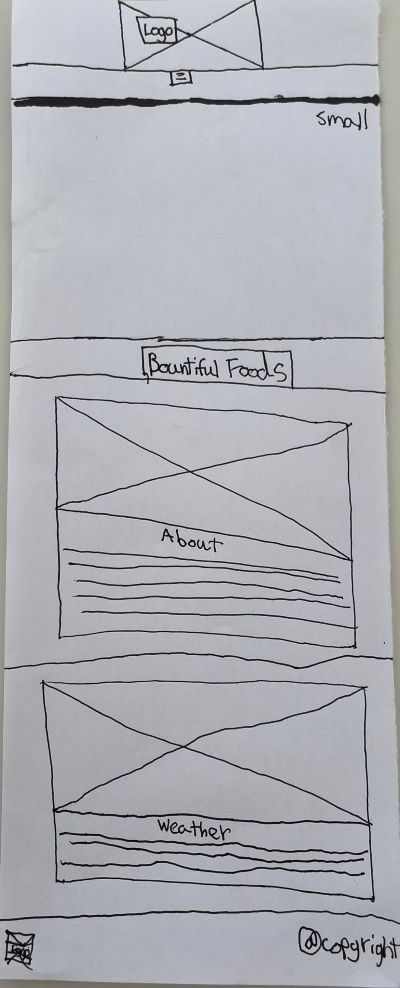 Logo
small
Bountiful Foods
About
Weather
Logo
@copyright